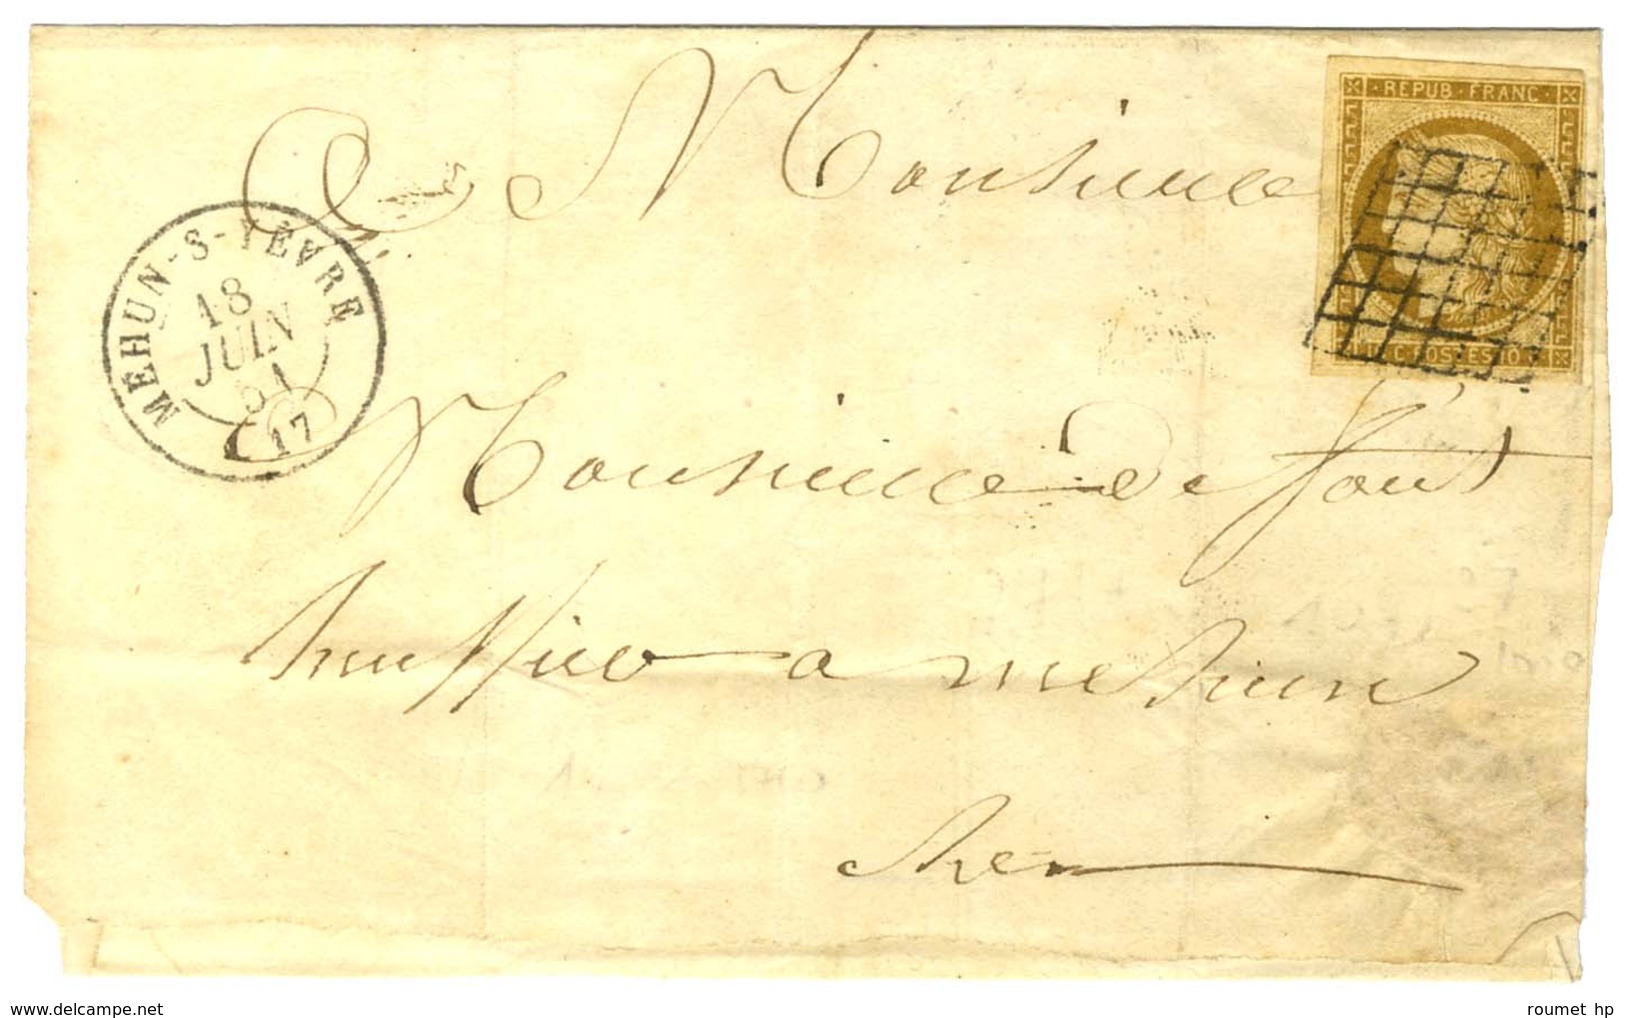 REPUB·FRANC·
A Monsieur
MEHUN-S-YÈVRE
18
JUIN
51
17
10
Monsieur Defont
huissier a mehun
cher
delcampe.net
roumet hp